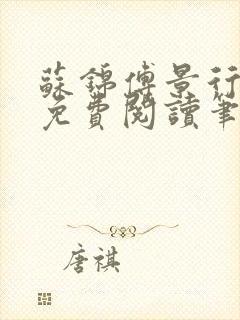 蘇錦傅景行
免費閱讀筆
唐祺